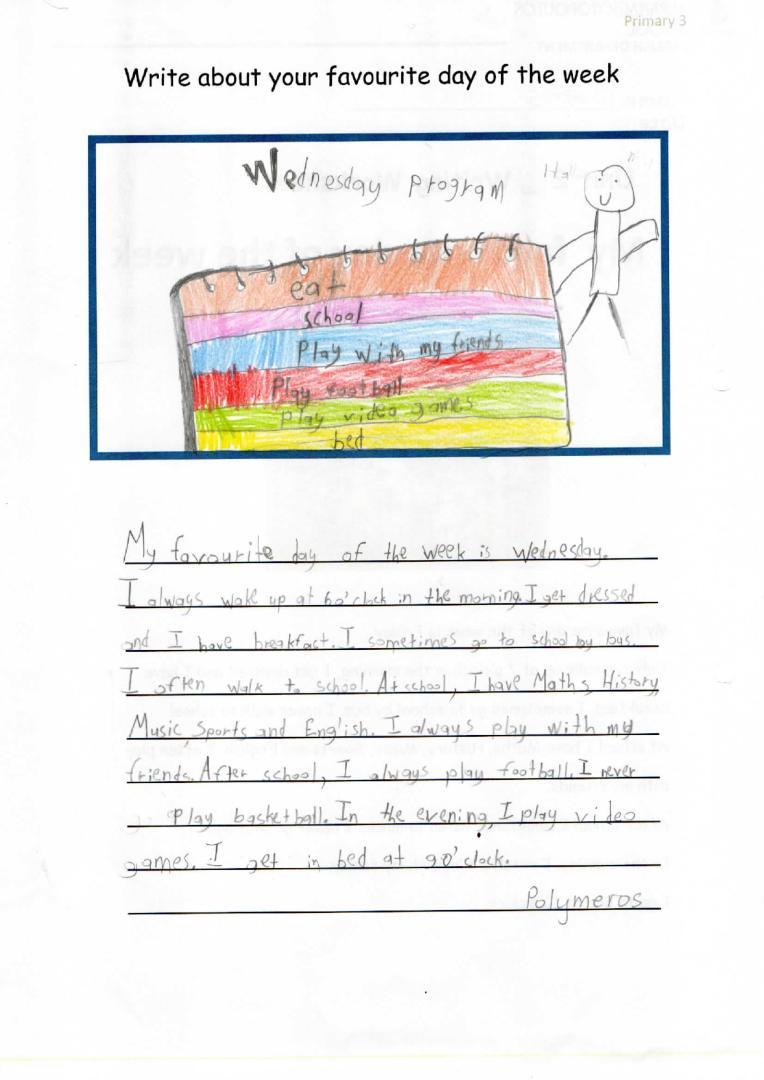 Primary 3
Write about your favourite day of the week
Wednesday program
eat
school
Play with my friends
Play football
play video games
bed
My favourite day of the week is Wednesday.
I always wake up at 6o'clock in the morning. I get dressed
and I have breakfast. I sometimes go to school by bus.
I often walk to school. At school, I have Maths, History,
Music Sports and English. I always play with my
friends. After school, I always play football. I never
Play basketball. In the evening, I play video
games. I get in bed at 9o'clock.
Polymeros